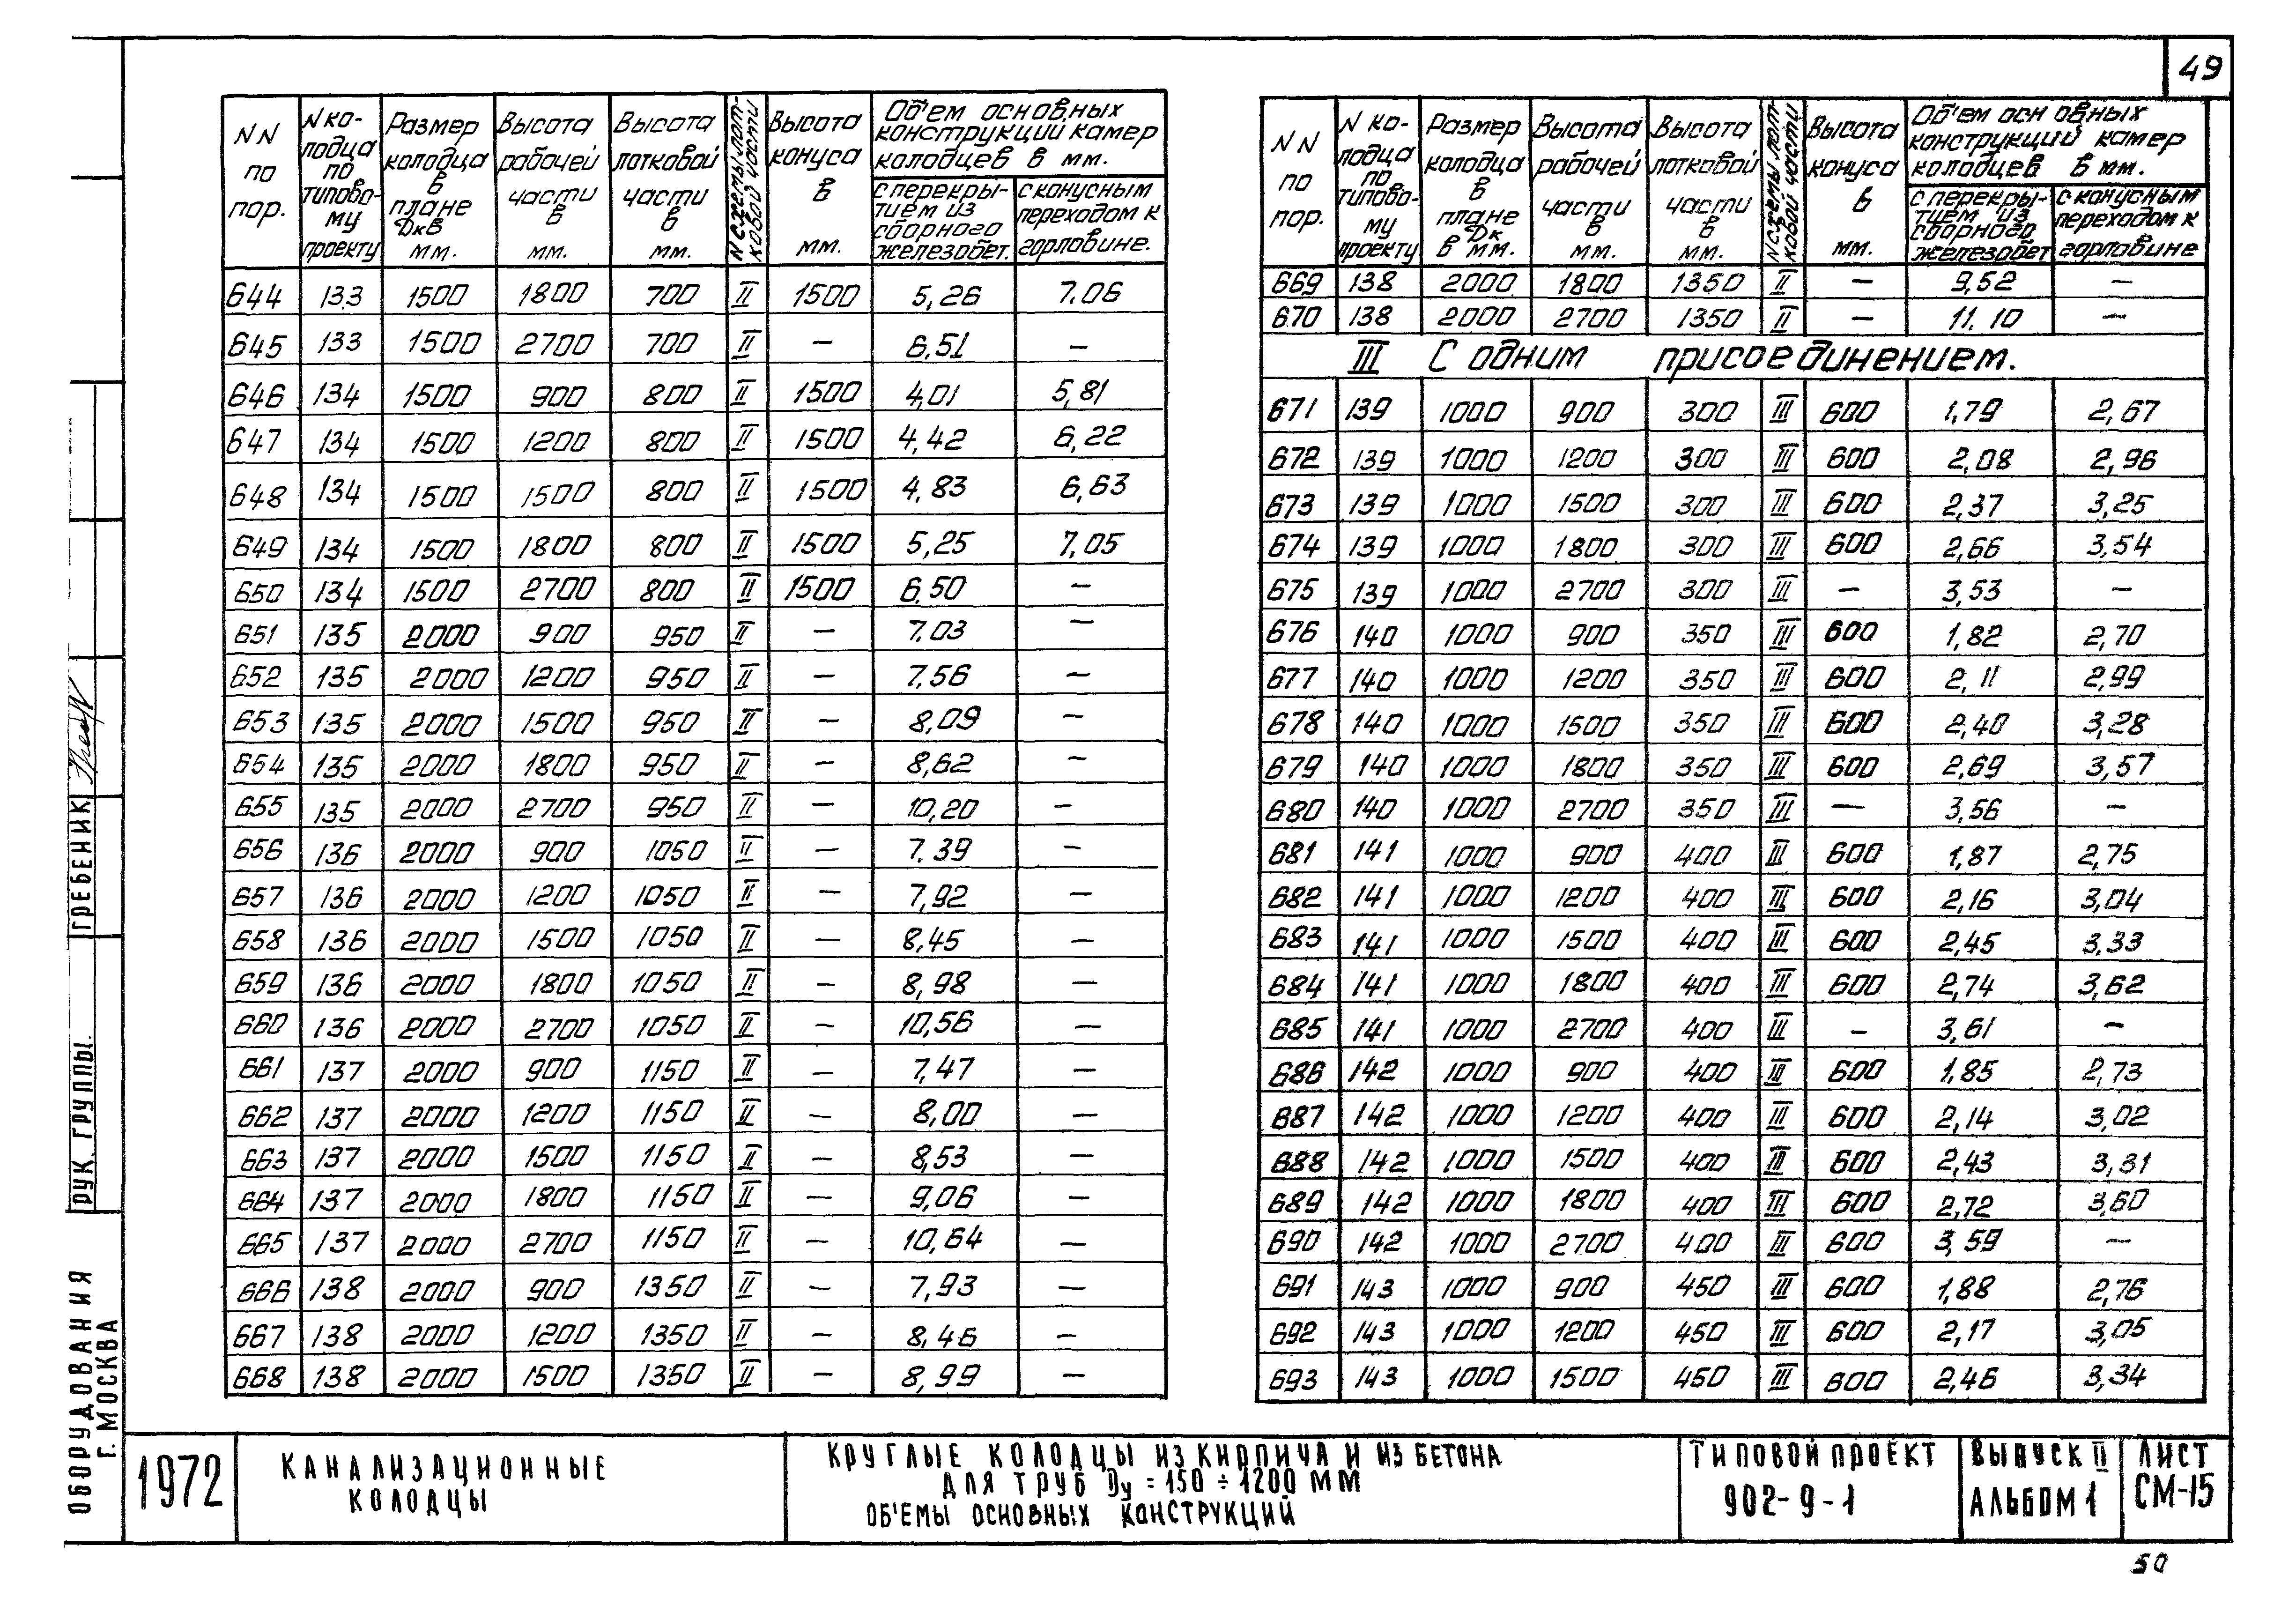 49
NN по пор. | N колодца по типовому проекту | Размер колодца в плане Dк в мм. | Высота рабочей части в мм. | Высота лотковой части в мм. | N схемы лотковой части | Высота конуса в мм. | Об'ем основных конструкций камер колодцев в мм. | с перекрытием из сборного железобет. | с конусным переходом к горловине.
644 133 1500 1800 700 II 1500 5,26 7,06
645 133 1500 2700 700 II — 6,51 —
646 134 1500 900 800 II 1500 4,01 5,81
647 134 1500 1200 800 II 1500 4,42 6,22
648 134 1500 1500 800 II 1500 4,83 6,63
649 134 1500 1800 800 II 1500 5,25 7,05
650 134 1500 2700 800 II 1500 6,50 —
651 135 2000 900 950 II — 7,03 —
652 135 2000 1200 950 II — 7,56 —
653 135 2000 1500 950 II — 8,09 —
654 135 2000 1800 950 II — 8,62 —
655 135 2000 2700 950 II — 10,20 —
656 136 2000 900 1050 II — 7,39 —
657 136 2000 1200 1050 II — 7,92 —
658 136 2000 1500 1050 II — 8,45 —
659 136 2000 1800 1050 II — 8,98 —
660 136 2000 2700 1050 II — 10,56 —
661 137 2000 900 1150 II — 7,47 —
662 137 2000 1200 1150 II — 8,00 —
663 137 2000 1500 1150 II — 8,53 —
664 137 2000 1800 1150 II — 9,06 —
665 137 2000 2700 1150 II — 10,64 —
666 138 2000 900 1350 II — 7,93 —
667 138 2000 1200 1350 II — 8,46 —
668 138 2000 1500 1350 II — 8,99 —
NN по пор. | N колодца по типовому проекту | Размер колодца в плане Dк в мм. | Высота рабочей части в мм. | Высота лотковой части в мм. | N схемы лотковой части | Высота конуса в мм. | Об'ем основных конструкций камер колодцев в мм. | с перекрытием из сборного железобет | с конусным переходом к горловине
669 138 2000 1800 1350 II — 9,52 —
670 138 2000 2700 1350 II — 11,10 —
III С одним присоединением.
671 139 1000 900 300 III 600 1,79 2,67
672 139 1000 1200 300 III 600 2,08 2,96
673 139 1000 1500 300 III 600 2,37 3,25
674 139 1000 1800 300 III 600 2,66 3,54
675 139 1000 2700 300 III — 3,53 —
676 140 1000 900 350 III 600 1,82 2,70
677 140 1000 1200 350 III 600 2,11 2,99
678 140 1000 1500 350 III 600 2,40 3,28
679 140 1000 1800 350 III 600 2,69 3,57
680 140 1000 2700 350 III — 3,56 —
681 141 1000 900 400 III 600 1,87 2,75
682 141 1000 1200 400 III 600 2,16 3,04
683 141 1000 1500 400 III 600 2,45 3,33
684 141 1000 1800 400 III 600 2,74 3,62
685 141 1000 2700 400 III — 3,61 —
686 142 1000 900 400 III 600 1,85 2,73
687 142 1000 1200 400 III 600 2,14 3,02
688 142 1000 1500 400 III 600 2,43 3,31
689 142 1000 1800 400 III 600 2,72 3,60
690 142 1000 2700 400 III 600 3,59 —
691 143 1000 900 450 III 600 1,88 2,76
692 143 1000 1200 450 III 600 2,17 3,05
693 143 1000 1500 450 III 600 2,46 3,34
РУК. ГРУППЫ. ГРЕБЕНИК
ОБОРУДОВАНИЯ
Г. МОСКВА
1972
КАНАЛИЗАЦИОННЫЕ
КОЛОДЦЫ
КРУГЛЫЕ КОЛОДЦЫ ИЗ КИРПИЧА И ИЗ БЕТОНА
ДЛЯ ТРУБ Dу = 150 ÷ 1200 ММ
ОБ'ЕМЫ ОСНОВНЫХ КОНСТРУКЦИЙ
ТИПОВОЙ ПРОЕКТ
902-9-1
ВЫПУСК II
АЛЬБОМ 1
ЛИСТ
СМ-15
50